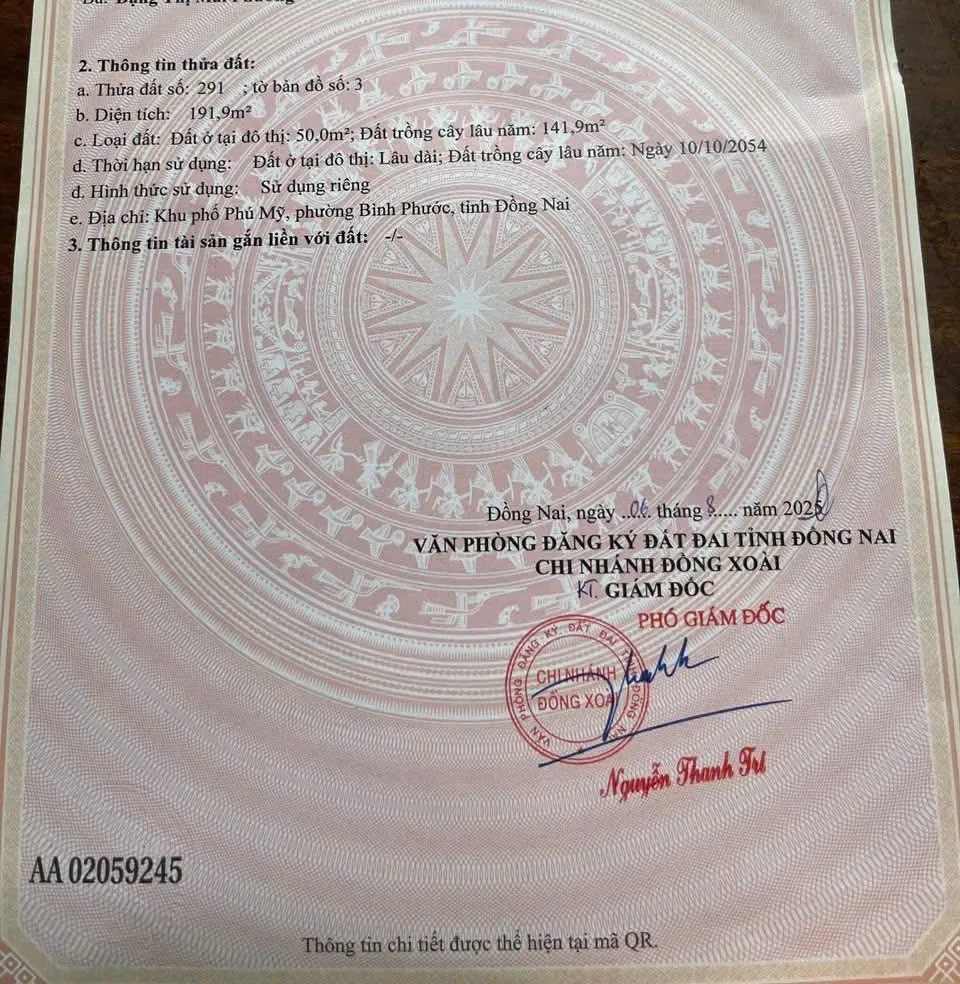 2. Thông tin thửa đất:
a. Thửa đất số: 291 ; tờ bản đồ số: 3
b. Diện tích: 191,9m²
c. Loại đất: Đất ở tại đô thị: 50,0m²; Đất trồng cây lâu năm: 141,9m²
d. Thời hạn sử dụng: Đất ở tại đô thị: Lâu dài; Đất trồng cây lâu năm: Ngày 10/10/2054
đ. Hình thức sử dụng: Sử dụng riêng
e. Địa chỉ: Khu phố Phú Mỹ, phường Bình Phước, tỉnh Đồng Nai
3. Thông tin tài sản gắn liền với đất: -/-
Đồng Nai, ngày ..06. tháng 8..... năm 2025
VĂN PHÒNG ĐĂNG KÝ ĐẤT ĐAI TỈNH ĐỒNG NAI
CHI NHÁNH ĐỒNG XOÀI
KT. GIÁM ĐỐC
PHÓ GIÁM ĐỐC
VĂN PHÒNG ĐĂNG KÝ ĐẤT ĐAI TỈNH ĐỒNG NAI
CHI NHÁNH
ĐỒNG XOÀI
Nguyễn Thanh Trí
AA 02059245
Thông tin chi tiết được thể hiện tại mã QR.